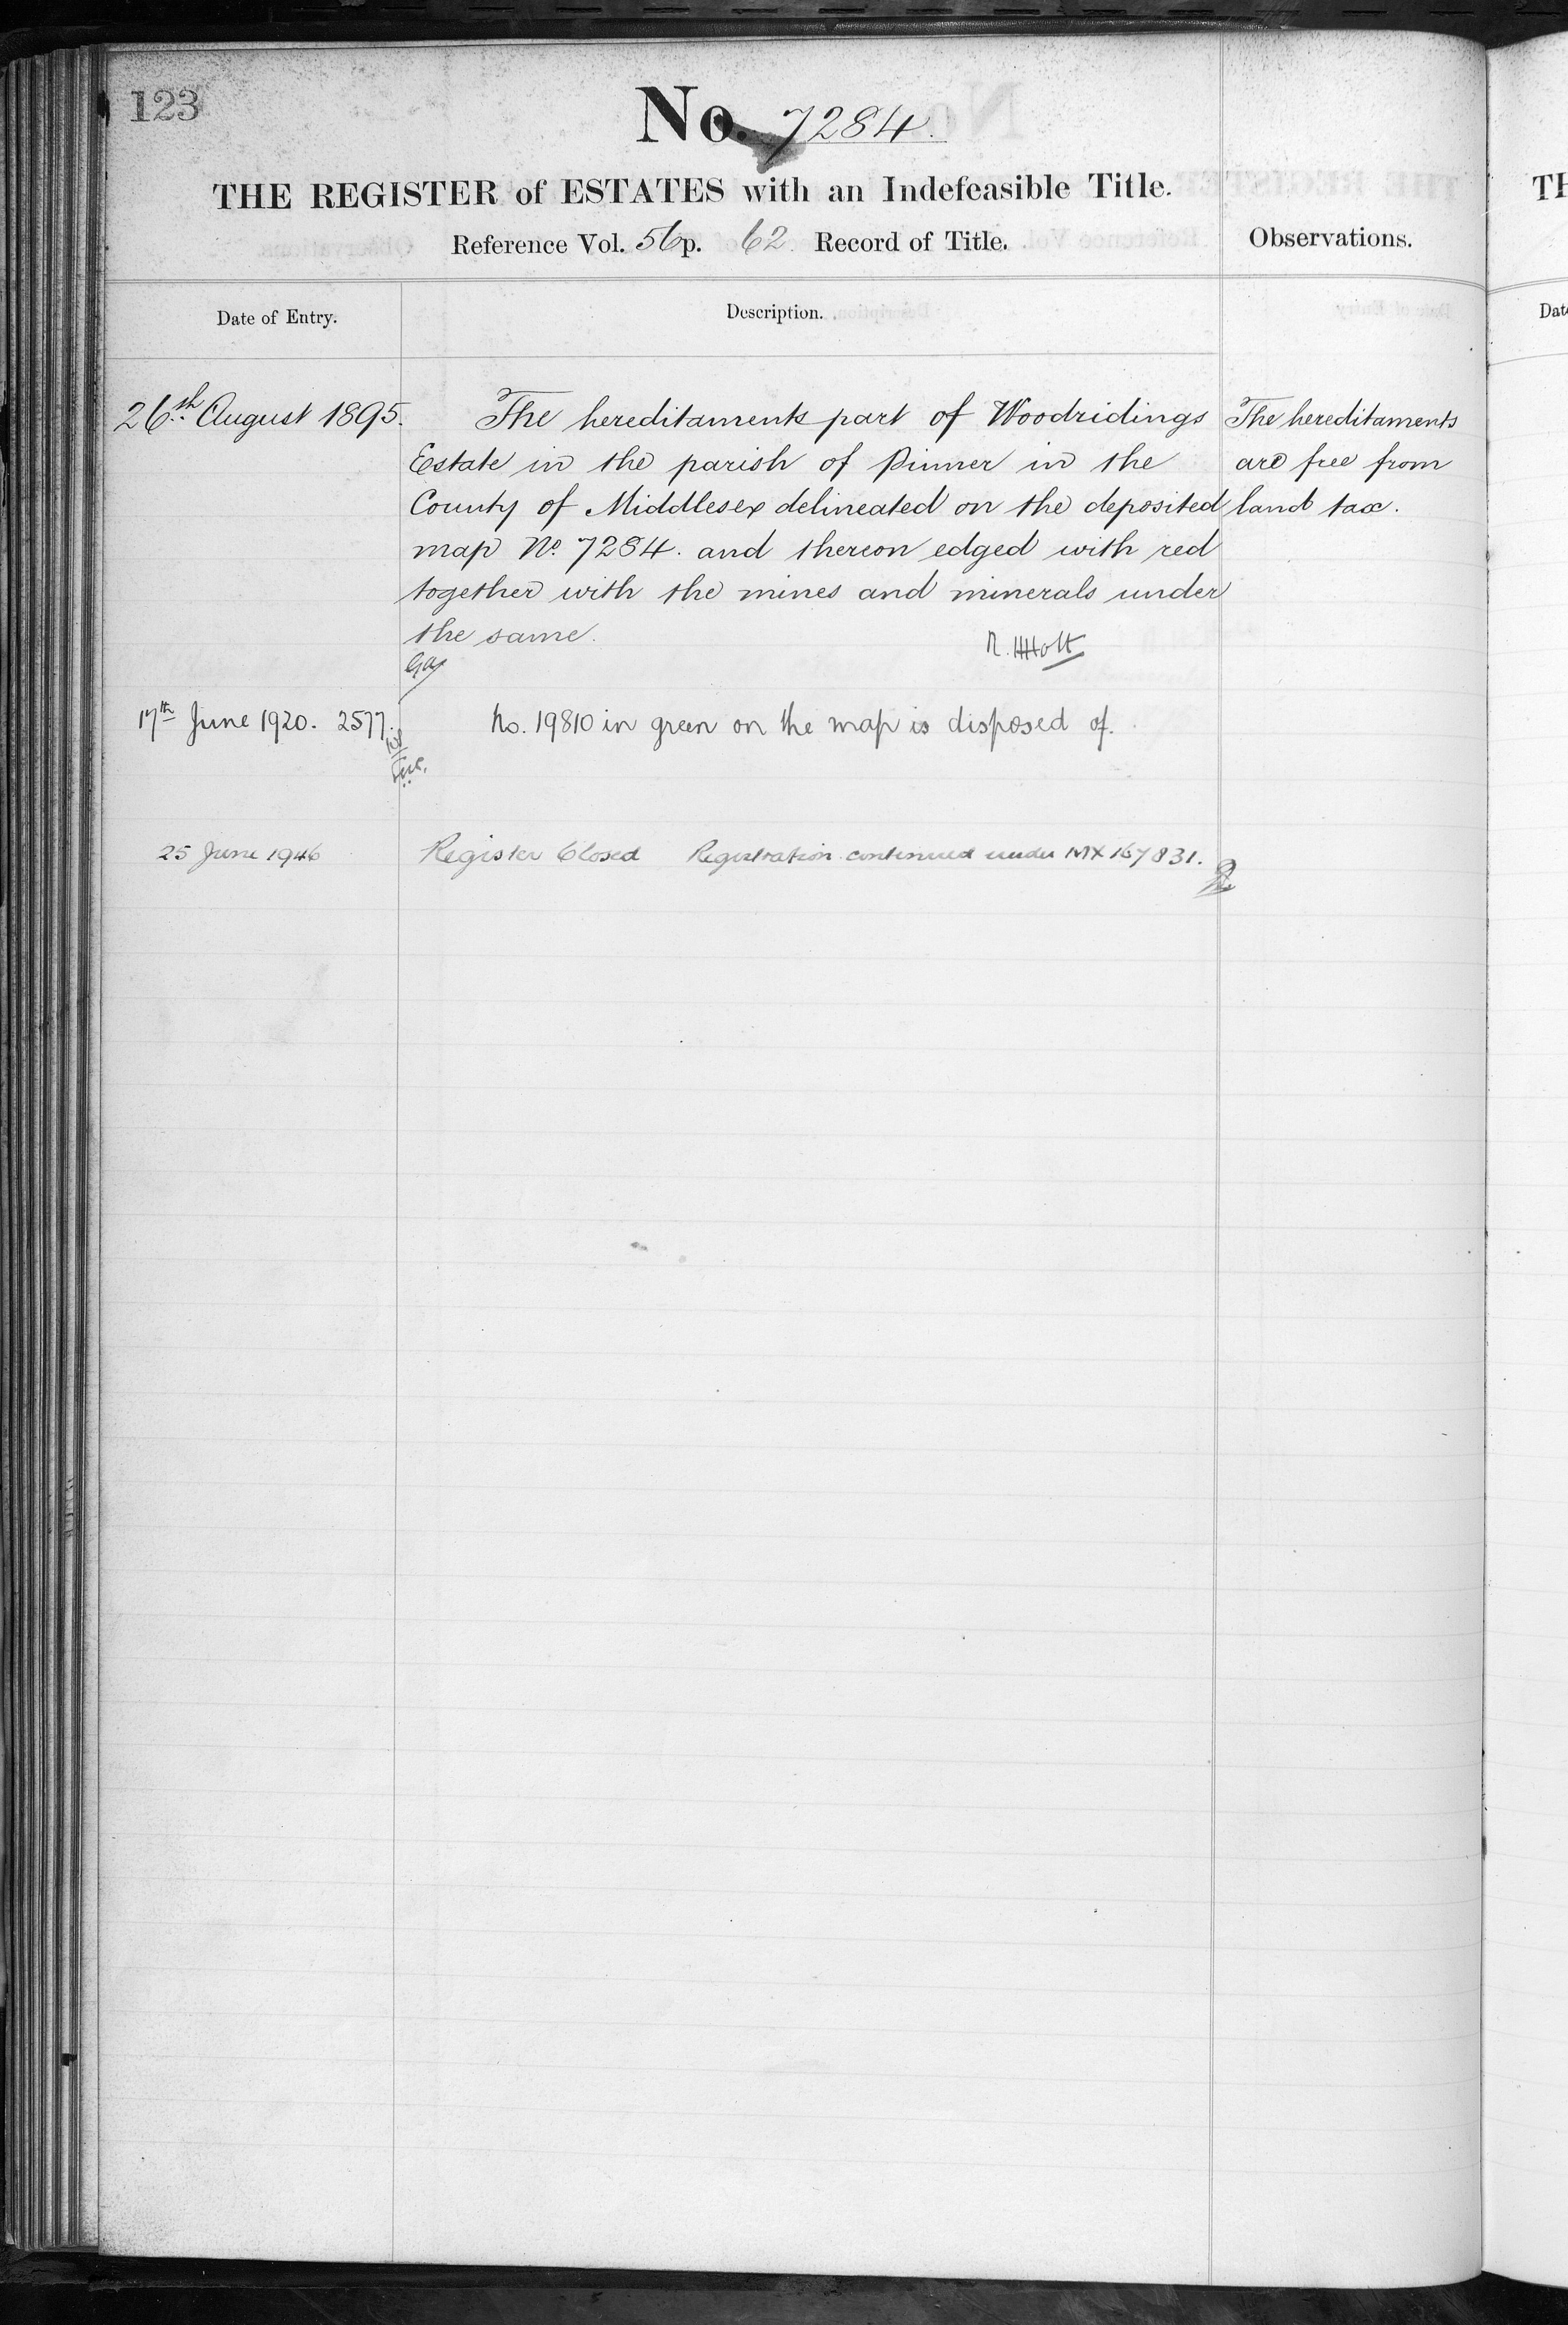 123
No. 7284.
THE REGISTER of ESTATES with an Indefeasible Title.
Reference Vol. 56 p. 62 Record of Title.
Observations.
Date of Entry.
Description.
26th August 1895.
The hereditaments part of Woodridings
Estate in the parish of Pinner in the
County of Middlesex delineated on the deposited
map No. 7284. and thereon edged with red
together with the mines and minerals under
the same.
The hereditaments
are free from
land tax.
R. H. Holt
17th June 1920. 2577.
No. 19810 in green on the map is disposed of.
25 June 1946
Register Closed Registration continued under MX 167831.